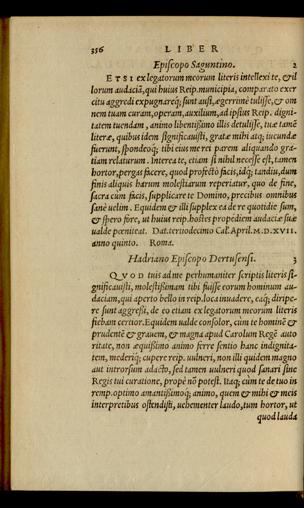 356 LIBER
Episcopo Saguntino. 2
ETSI ex legatorum meorum literis intellexi te, & il
lorum audaciã, qui huius Reip. municipia, comparato exer
citu aggredi expugnareq; sunt ausi, ægerrimè tulisse, & om
nem tuam curam, operam, auxilium, ad ipsius Reip. digni-
tatem tuendam, animo libentissimo illis detulisse, tuæ tamẽ
literæ, quibus idem significauisti, gratæ mihi atq; iucundæ
fuerunt, spondeoq; tibi eius me rei parem aliquando gra-
tiam relaturum. Interea te, etiam si nihil necesse est, tamen
hortor, pergas facere, quod profectò facis, idq; tandiu, dum
finis aliquis harum molestiarum reperiatur, quo de fine,
sacra cùm facis, supplicare te Domino, precibus omnibus
sanè uelim. Equidem & illi supplex ea de re quotidie sum,
& spero fore, ut huius reip. hostes propediem audaciæ suæ
ualde pœniteat. Dat. tertiodecimo Cal. April. M.D.XVII.
anno quinto. Roma.
Hadriano Episcopo Dertusensi. 3
QVOD tuis ad me perhumaniter scriptis literis si-
gnificauisti, molestissimam tibi fuisse eorum hominum au-
daciam, qui aperto bello in reip. loca inuadere, eaq; diripe-
re sunt aggressi, de eo etiam ex legatorum meorum literis
fiebam certior. Equidem ualde consolor, cùm te hominẽ &
prudentẽ & grauem, & magna apud Carolum Regẽ auto
ritate, non æquissimo animo ferre sentio hanc indignita-
tem, mederiq; cupere reip. uulneri, non illi quidem magno
aut introrsum adacto, sed tamen uulneri quod sanari sine
Regis tui curatione, propè nõ potest. Itaq; cùm te de tuo in
remp. optimo amantissimoq; animo, quem & mihi & meis
interpretibus ostendisti, uehementer laudo, tum hortor, ut
quod lauda